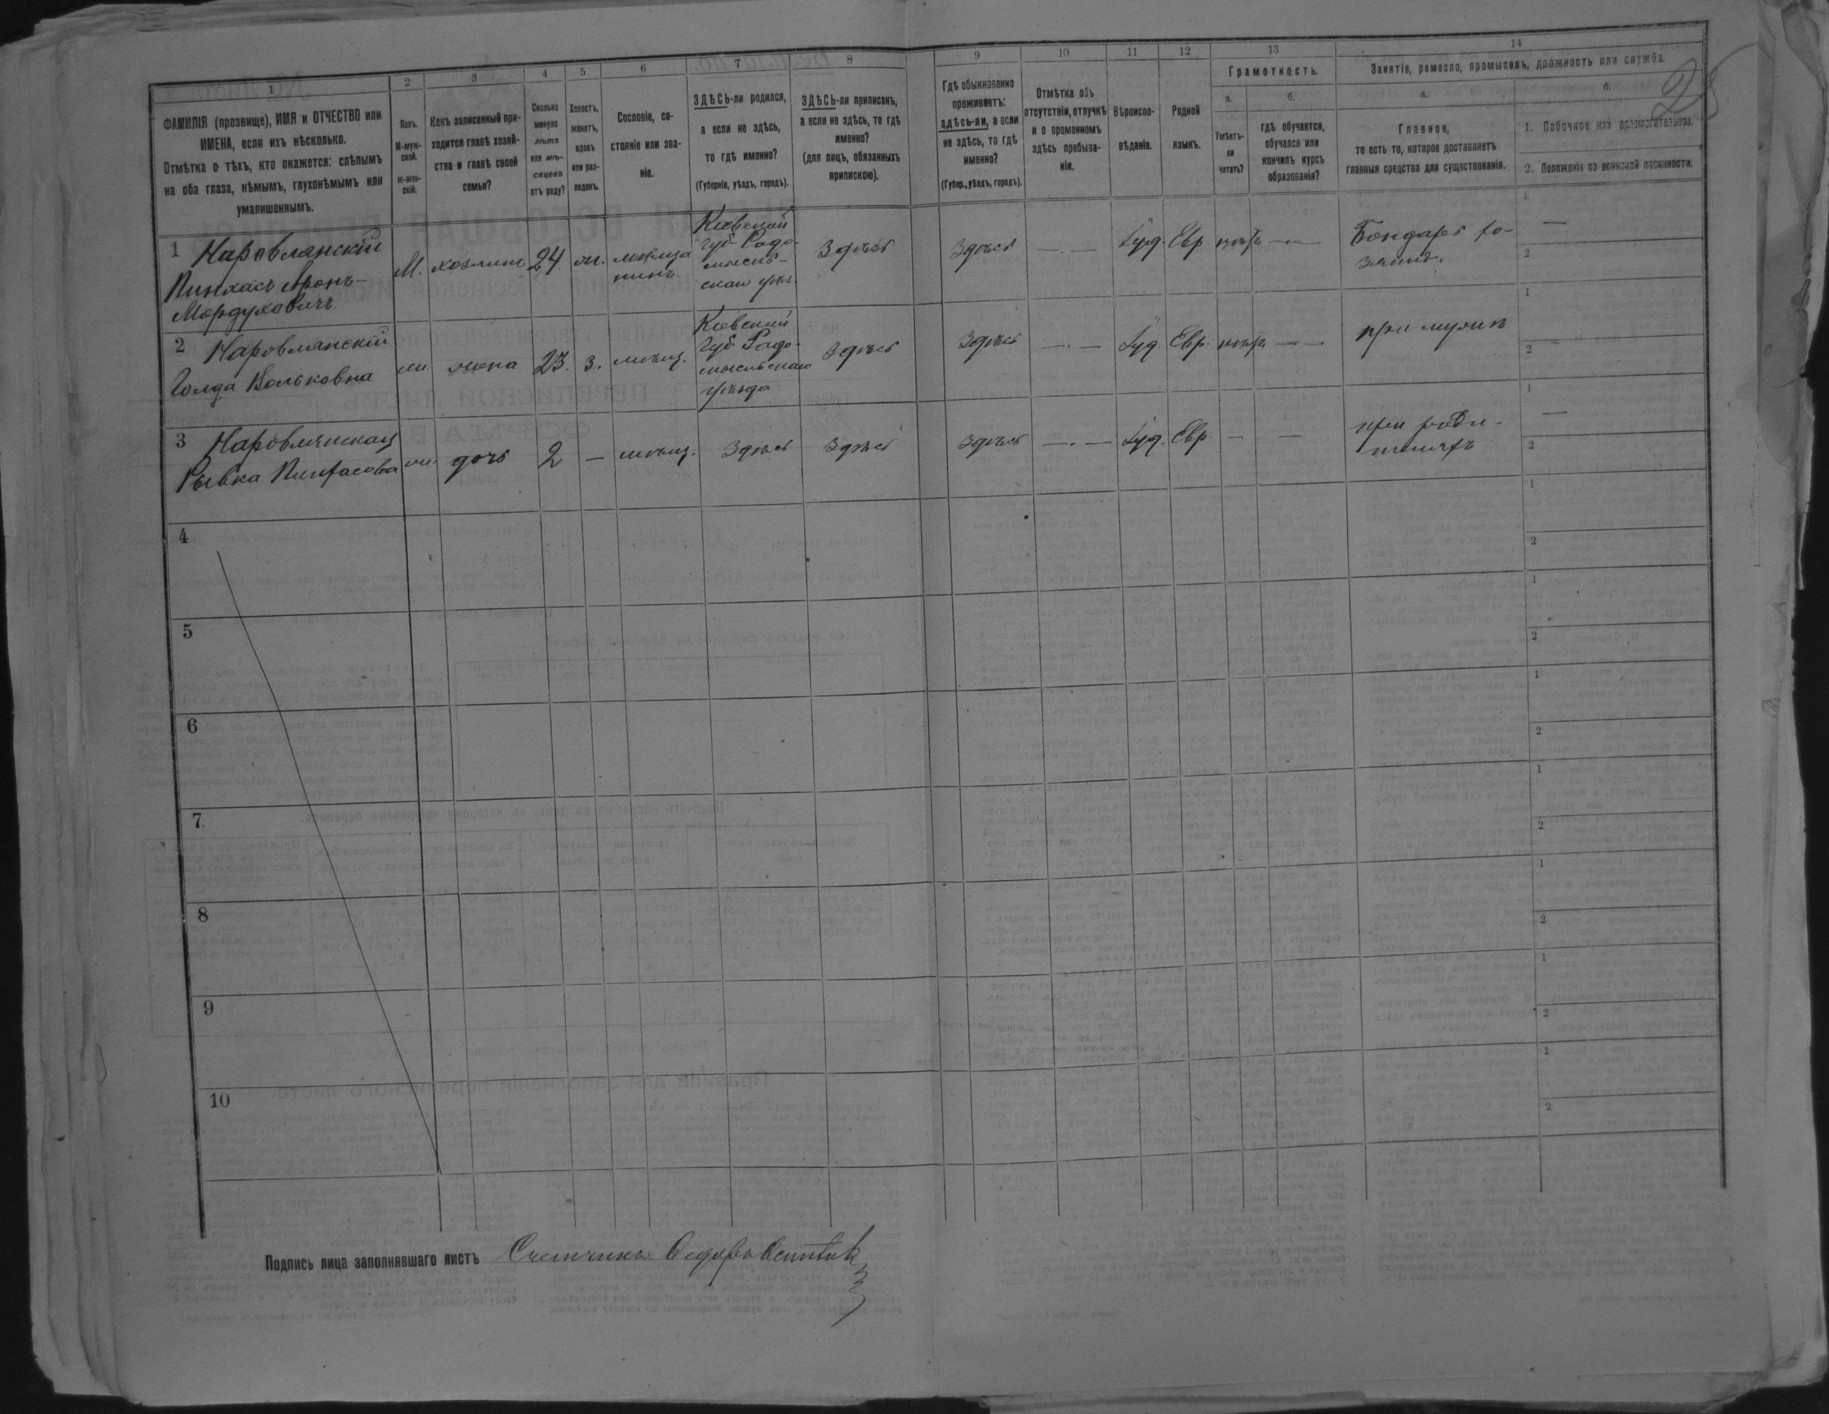 1 2 3 4 5 6 7 8 9 10 11 12 13 14
ФАМИЛІЯ (прозвище), ИМЯ и ОТЧЕСТВО или
ИМЕНА, если ихъ нѣсколько.
Отмѣтка о тѣхъ, кто окажется: слѣпымъ
на оба глаза, нѣмымъ, глухонѣмымъ или
умалишеннымъ.
Полъ.
М-муж-
ской.
ж-жен-
скій.
Какъ записанный при-
ходится главѣ хозяй-
ства и главѣ своей
семьи?
Сколько
минуло
лѣтъ
или мѣ-
сяцевъ
отъ роду?
Холостъ,
женатъ,
вдовъ
или раз-
веденъ.
Сословіе, со-
стояніе или зва-
ніе.
ЗДѢСЬ-ли родился,
а если не здѣсь,
то гдѣ именно?
(Губернія, уѣздъ, городъ).
ЗДѢСЬ-ли приписанъ,
а если не здѣсь, то гдѣ
именно?
(для лицъ, обязанныхъ
припискою).
Гдѣ обыкновенно
проживаетъ:
здѣсь-ли, а если
не здѣсь, то гдѣ
именно?
(Губер., уѣздъ, городъ).
Отмѣтка объ
отсутствіи, отлучкѣ
и о временномъ
здѣсь пребыва-
ніи.
Вѣроиспо-
вѣданіе.
Родной
языкъ.
Грамотность.
а.
Умѣетъ-
ли
читать?
б.
гдѣ обучается,
обучался или
кончилъ курсъ
образованія?
Занятіе, ремесло, промыселъ, должность или служба.
а.
Главное,
то есть то, которое доставляетъ
главныя средства для существованія.
б.
1. Побочное или вспомогательное.
2. Положеніе по воинской повинности.
25
1 Наровлянскій
Пинхасъ Аронъ-
Мордуховичъ
М. хозяинъ 24 ж. мѣщанинъ
Кіевской
Губ. Радо-
мысль-
скаго уѣз.
Здѣсь Здѣсь — Іуд. Евр. нѣтъ —
Бондарь хо-
зяинъ. —
1
2
2 Наровлянскій
Голда Вольковна
ж жена 23. з. мѣщ.
Кіевской
Губ. Радо-
мысльскаго
уѣзда
Здѣсь Здѣсь — Іуд. Евр. нѣтъ —
при мужѣ
1
2
3 Наровлянская
Рывка Пинхасова
ж. дочь 2 — мѣщ. Здѣсь Здѣсь Здѣсь — Іуд. Евр. — —
при роди-
теляхъ —
1
2
4
1
2
5
1
2
6
1
2
7
1
2
8
1
2
9
1
2
10
1
2
Подпись лица заполнявшаго листъ Счетчикъ